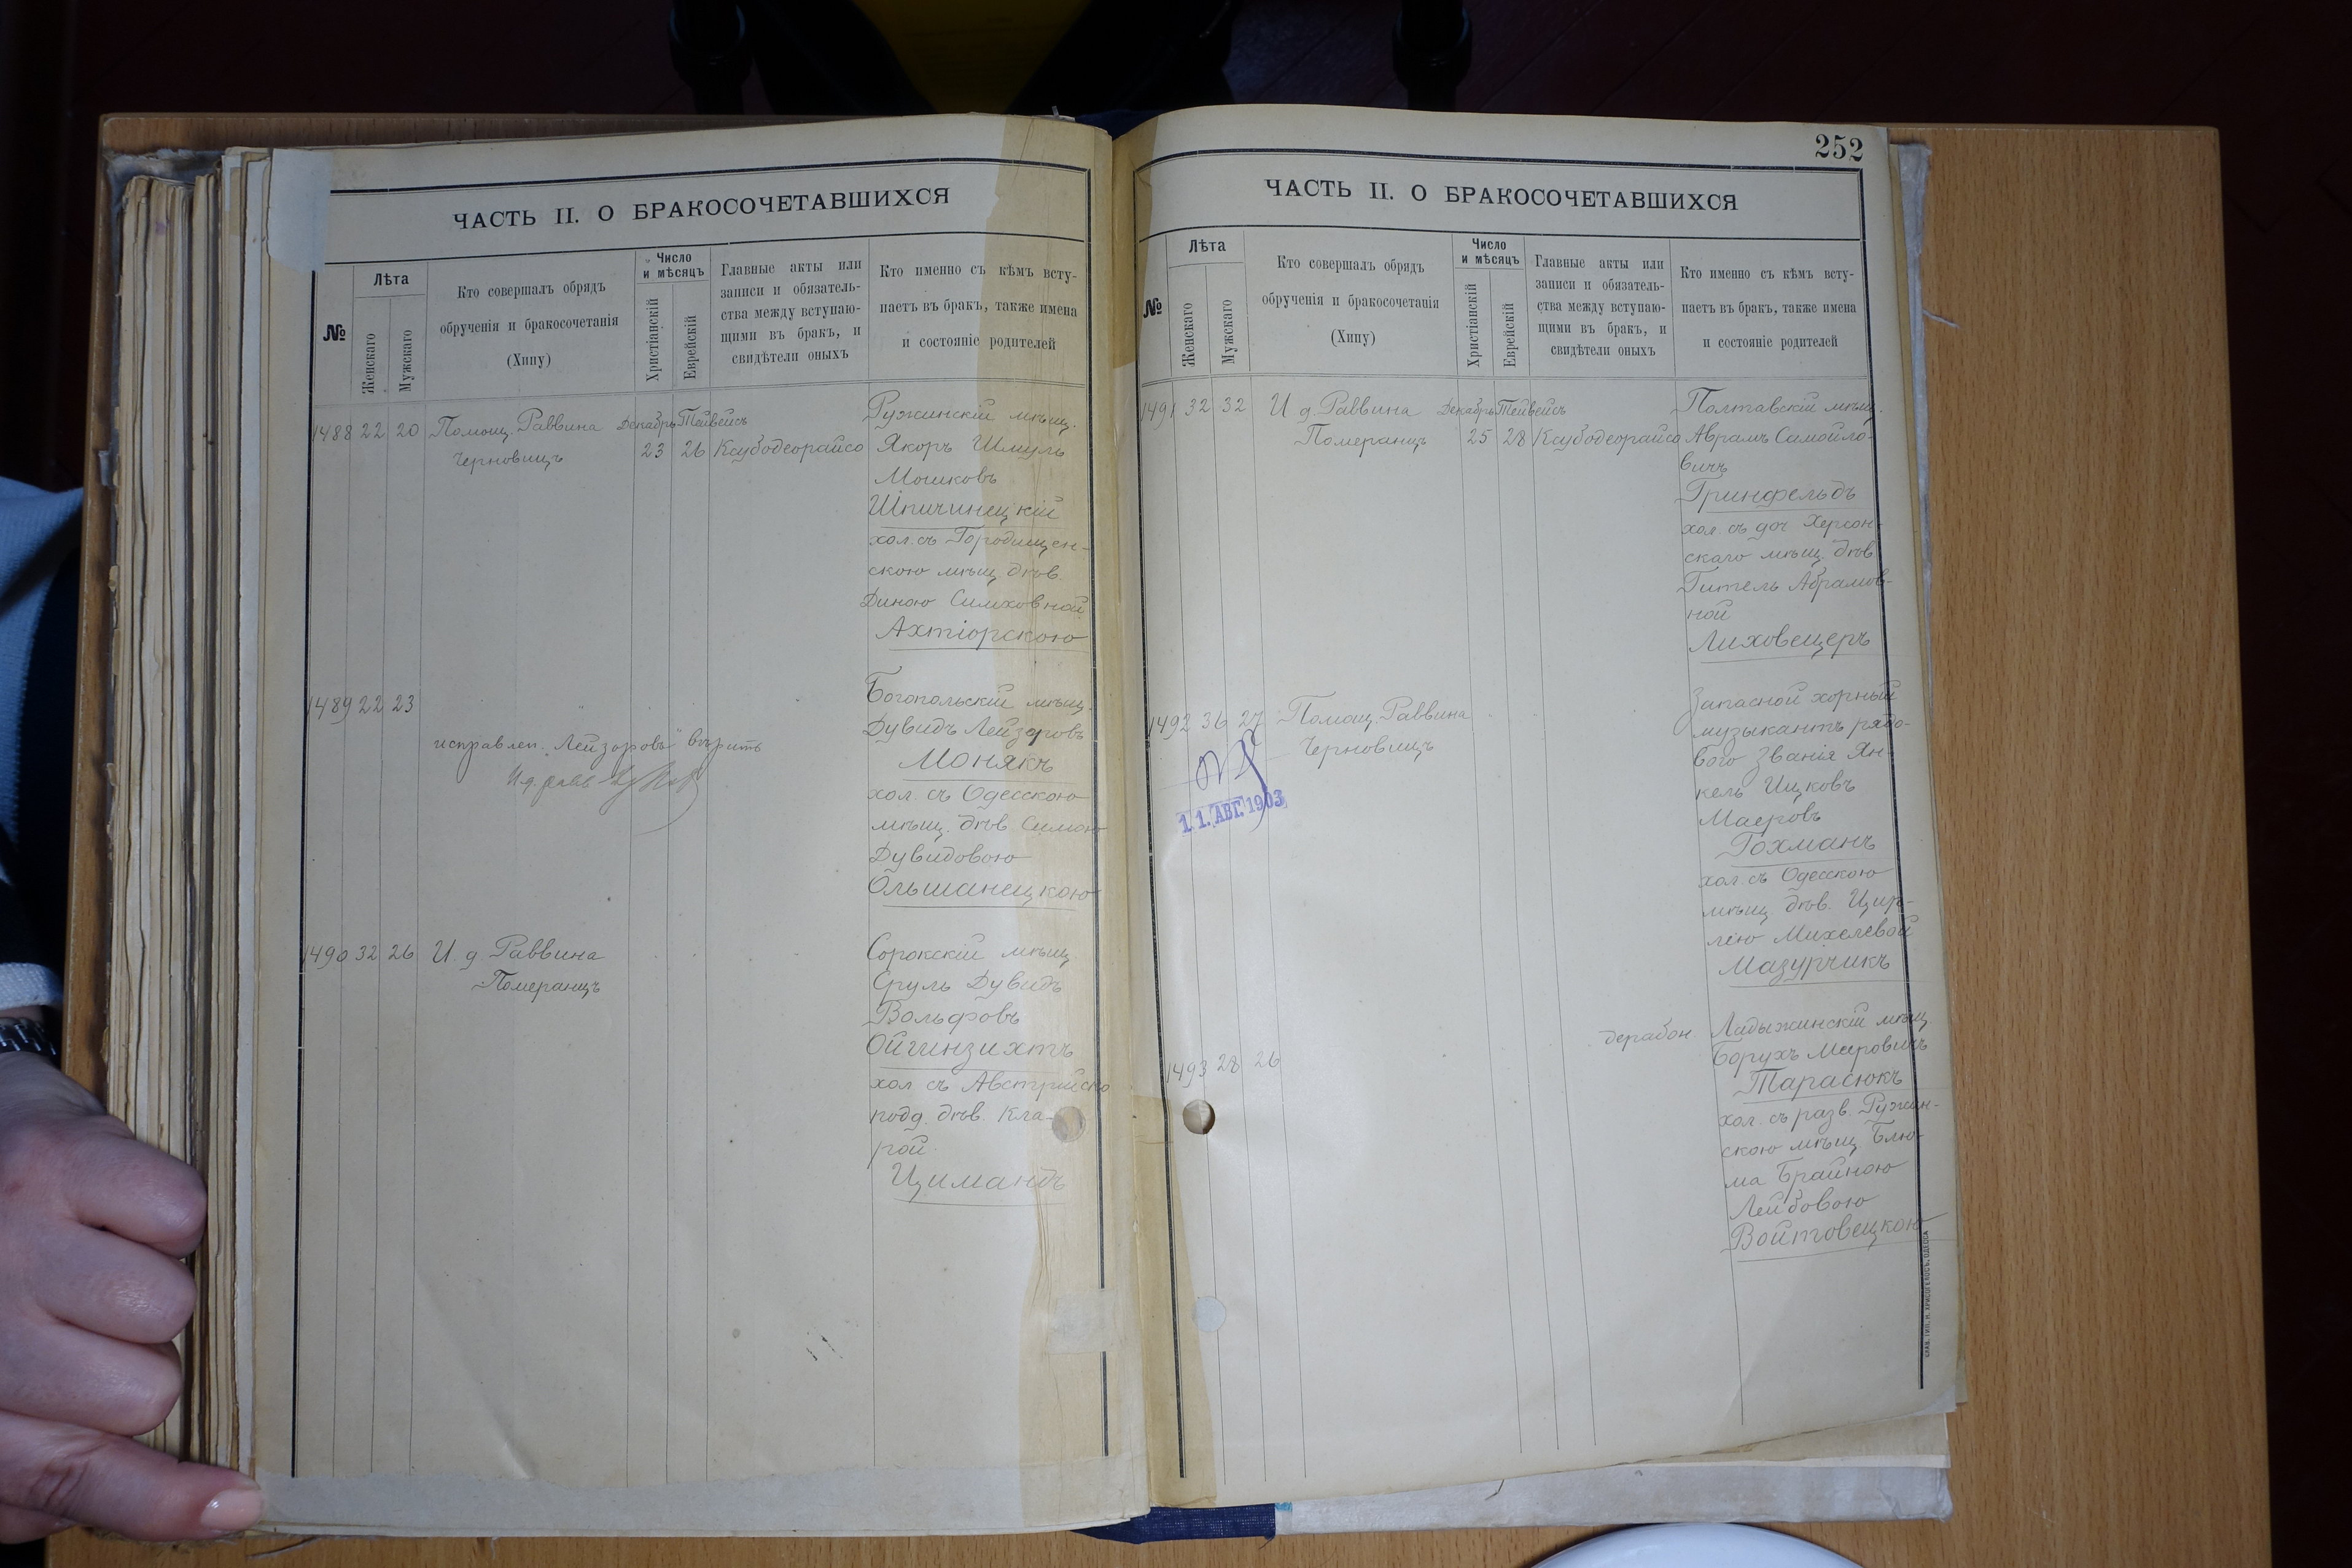 ЧАСТЬ II. О БРАКОСОЧЕТАВШИХСЯ
№
Лѣта
Женскаго
Мужскаго
Кто совершалъ обрядъ
обрученія и бракосочетанія
(Хипу)
Число
и мѣсяцъ
Христіанскій
Еврейскій
Главные акты или
записи и обязатель-
ства между вступаю-
щими въ бракъ, и
свидѣтели оныхъ
Кто именно съ кѣмъ всту-
паетъ въ бракъ, также имена
и состояніе родителей
1488 22 20 Помощ. Раввина
Черновицъ
Декабрь Тейвейсъ
23 26 Ксубодеорайсо
Ружинскій мѣщ.
Якоръ Шмуль
Мошковъ
Шпичинецкій
хол. съ Городищен-
скою мѣщ. дѣв.
Диною Симховной
Ахтіорскою
1489 22 23
исправлен. "Лейзоровъ" вѣрить
Богопольскій мѣщ.
Дувидъ Лейзоровъ
Монякъ
хол. съ Одесскою
мѣщ. дѣв. Симою
Дувидовою
Ольшанецкою
1490 32 26 И д Раввина
Померанцъ
Сорокскій мѣщ
Сруль Дувидъ
Вольфовъ
Ойгинзихтъ
хол съ Австрійско
подд. дѣв. Кла-
рой
Цимандъ
252
ЧАСТЬ II. О БРАКОСОЧЕТАВШИХСЯ
№
Лѣта
Женскаго
Мужскаго
Кто совершалъ обрядъ
обрученія и бракосочетанія
(Хипу)
Число
и мѣсяцъ
Христіанскій
Еврейскій
Главные акты или
записи и обязатель-
ства между вступаю-
щими въ бракъ, и
свидѣтели оныхъ
Кто именно съ кѣмъ всту-
паетъ въ бракъ, также имена
и состояніе родителей
1491 32 32 И д. Раввина
Померанцъ
Декабрь Тейвейсъ
25 28 Ксубодеорайсо
Полтавскій мѣщ.
Аврамъ Самойло-
вичъ
Гринфельдъ
хол. съ доч Херсон-
скаго мѣщ. дѣв
Гитель Абрамов-
ной
Лиховецеръ
1492 36 27 Помощ. Раввина
Черновицъ
11. АВГ. 1903
Запасной хорный
музыкантъ рядо-
вого званія Ян-
кель Ицковъ
Маеровъ
Гохманъ
хол. съ Одесскою
мѣщ. дѣв. Цир-
лею Михелевой
Мазурчикъ
1493 28 26
дерабон.
Ладыжинскій мѣщ
Борухъ Мееровичъ
Тарасюкъ
хол. съ разв. Ружин-
скою мѣщ. Блю-
ма Брайною
Лейбовою
Войтовецкою